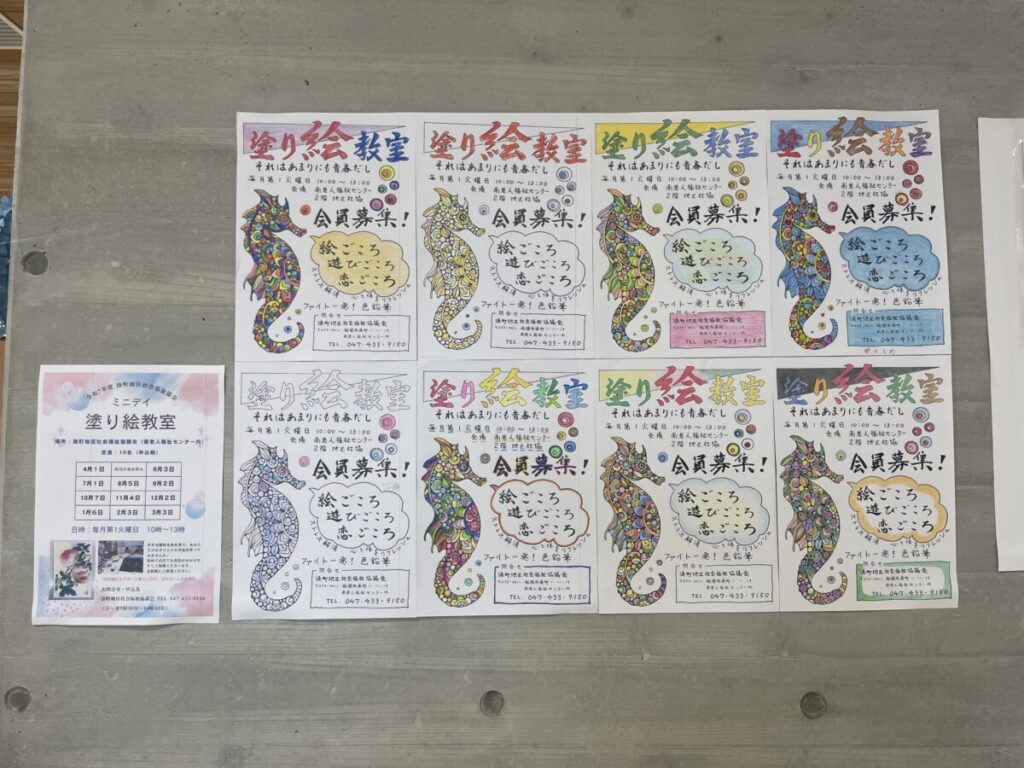 塗り絵教室
それはあまりにも青春だし
毎月第1火曜日 10:00～13:00
会場 南老人福祉センター
2階 地区社協
会員募集!
絵ごころ
遊びごころ
恋ごころ
ストレス解消
ファイト一発! 色鉛筆
問合せ
湊町地区社会福祉協議会
南老人福祉センター内
TEL. 047-433-9150
塗り絵教室
それはあまりにも青春だし
毎月第1火曜日 10:00～13:00
会場 南老人福祉センター
2階 地区社協
会員募集!
絵ごころ
遊びごころ
恋ごころ
ストレス解消
ファイト一発! 色鉛筆
問合せ
湊町地区社会福祉協議会
南老人福祉センター内
TEL. 047-433-9150
塗り絵教室
それはあまりにも青春だし
毎月第1火曜日 10:00～13:00
会場 南老人福祉センター
2階 地区社協
会員募集!
絵ごころ
遊びごころ
恋ごころ
ストレス解消
ファイト一発! 色鉛筆
問合せ
湊町地区社会福祉協議会
南老人福祉センター内
TEL. 047-433-9150
塗り絵教室
それはあまりにも青春だし
毎月第1火曜日 10:00～13:00
会場 南老人福祉センター
2階 地区社協
会員募集!
絵ごころ
遊びごころ
恋ごころ
ストレス解消
ファイト一発! 色鉛筆
問合せ
湊町地区社会福祉協議会
南老人福祉センター内
TEL. 047-433-9150
令和7年度 湊町地区社会福祉協議会
ミニデイ
塗り絵教室
場所:湊町地区社会福祉協議会(南老人福祉センター内)
定員:10名(申込制)
4月1日 6月3日
7月1日 8月5日 9月2日
10月7日 11月4日 12月2日
1月6日 2月3日 3月3日
日時:毎月第1火曜日 10時～13時
お問合せ・申込先
湊町地区社会福祉協議会 TEL 047-433-9150
塗り絵教室
それはあまりにも青春だし
毎月第1火曜日 10:00～13:00
会場 南老人福祉センター
2階 地区社協
会員募集!
絵ごころ
遊びごころ
恋ごころ
ストレス解消
ファイト一発! 色鉛筆
問合せ
湊町地区社会福祉協議会
南老人福祉センター内
TEL. 047-433-9150
塗り絵教室
それはあまりにも青春だし
毎月第1火曜日 10:00～13:00
会場 南老人福祉センター
2階 地区社協
会員募集!
絵ごころ
遊びごころ
恋ごころ
ストレス解消
ファイト一発! 色鉛筆
問合せ
湊町地区社会福祉協議会
南老人福祉センター内
TEL. 047-433-9150
塗り絵教室
それはあまりにも青春だし
毎月第1火曜日 10:00～13:00
会場 南老人福祉センター
2階 地区社協
会員募集!
絵ごころ
遊びごころ
恋ごころ
ストレス解消
ファイト一発! 色鉛筆
問合せ
湊町地区社会福祉協議会
南老人福祉センター内
TEL. 047-433-9150
塗り絵教室
それはあまりにも青春だし
毎月第1火曜日 10:00～13:00
会場 南老人福祉センター
2階 地区社協
会員募集!
絵ごころ
遊びごころ
恋ごころ
ストレス解消
ファイト一発! 色鉛筆
問合せ
湊町地区社会福祉協議会
南老人福祉センター内
TEL. 047-433-9150